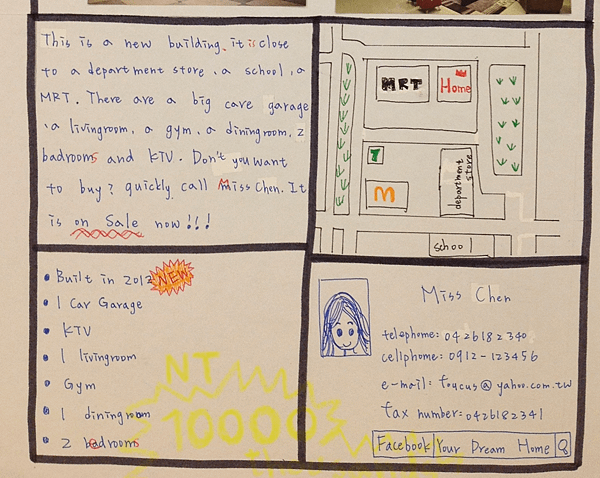 This is a new building. it is close
to a department store, a school, a
MRT. There are a big care garage
, a livingroom, a gym, a diningroom, 2
badrooms and KTV. Don't you want
to buy? quickly call Miss Chen. It
is on Sale now!!!
MRT
Home
7
M
department store
school
Built in 2012 NEW
1 Car Garage
KTV
1 livingroom
Gym
1 diningroom
2 badrooms
NT
10000
Miss Chen
telephone: 0426182340
cellphone: 0912-123456
e-mail: foucus@yahoo.com.tw
fax number: 0426182341
Facebook Your Dream Home